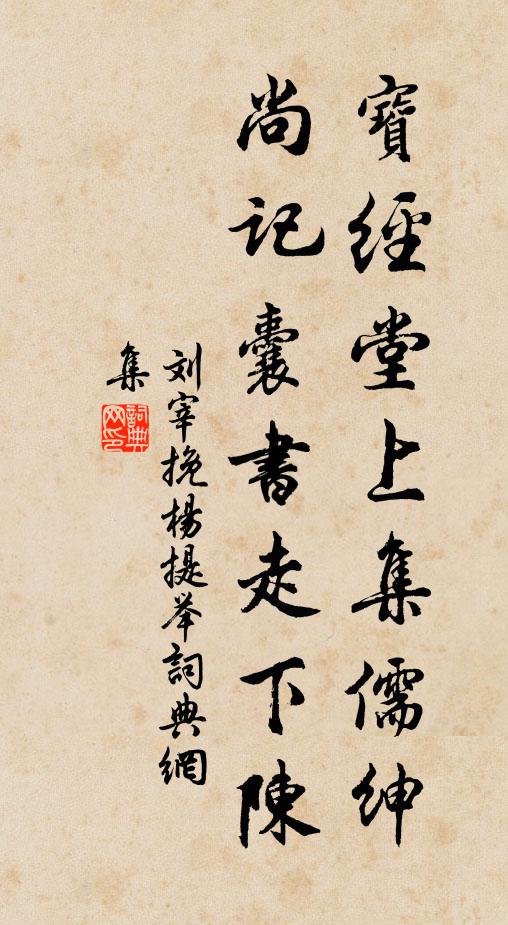 寶經堂上集儒紳
尚記囊書走下陳
刘宰挽楊提举詞典網
集
詞典
网印